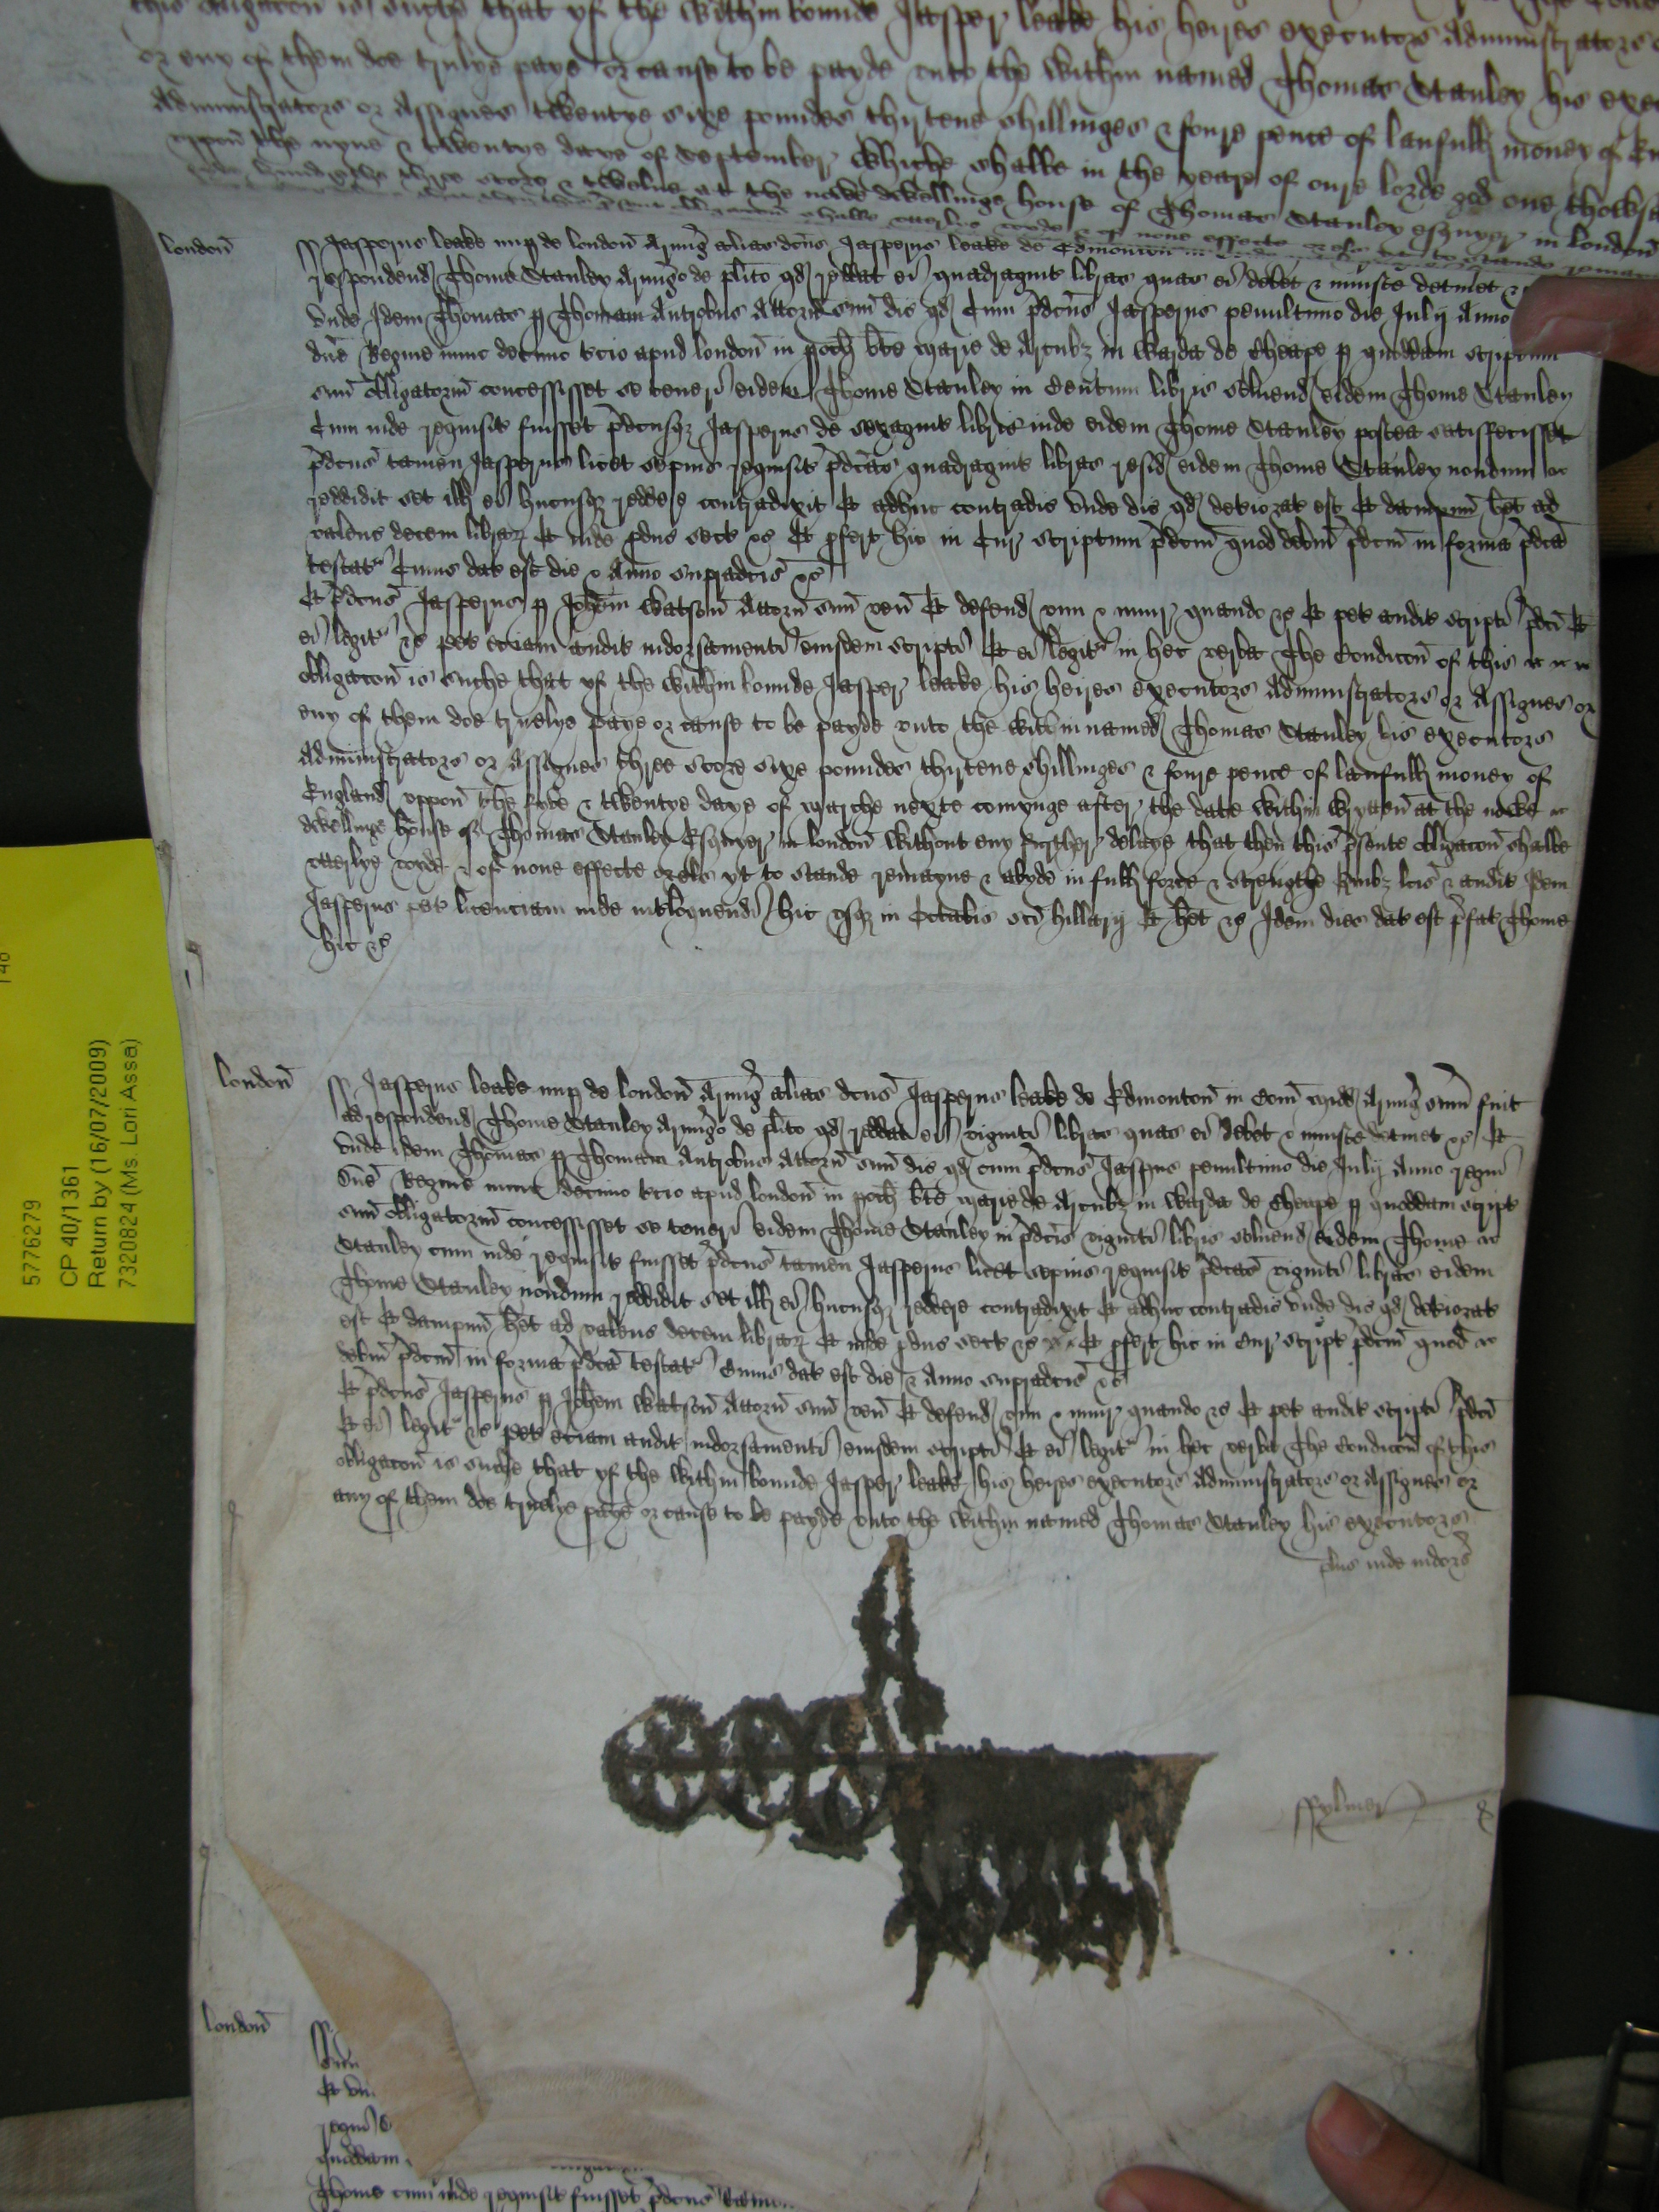 this obligacon is suche that yf the within bounde Jasper leake his heires executors Administrators
or eny of them doe trulye paye or cause to be payde unto the within named Thomas Stanley his exe
Administrators or Assignes twentye sixe poundes thirtene shillinges & foure pence of laufull money of En
uppon the nyne & twentye daye of September whiche shalbe in the yeare of oure lorde god one thowsa
hundrethe three score & twelve at the nowe dwellinge house of Thomas Stanley esquyer in london
london
ss Jasperus leake nup de london Armig alias dcus Jasperus leake de Edmonton in
respondend Thome Stanley Armigo de plito qd reddat ei quadragint libras quas ei debet & iniuste detinet &
Unde Idem Thomas p Thomam Antrobus Attorn suu dic qd Cum pdcus Jasperus penultimo die Julij Anno
dne Regine nunc decimo tcio apud london in poch bte marie de Arcubz in Warda de Cheape p quoddam scriptum
suu obligatoriu concessisset se teneri eidem Thome Stanley in Centum libris solvend eidem Thome Stanley
Cum inde requisit fuisset pdcusqz Jasperus de sexagint libris inde eidem Thome Stanley postea satisfecisset
pdcus tamen Jasperus licet sepius requisit pdcas quadragint libras resid eidem Thome Stanley nondum
reddidit set ill ei hucusqz reddere contradixit Et adhuc contradic Unde dic qd deteriorat est Et dampnu het ad
valenc decem librar Et inde pduc sect &c Et pfert hic in Cur scriptum pdcm quod debm pdcm in forma pdca
testat Cuius dat est die & Anno supradcis &c
Et pdcus Jasperus p Johem Watson Attorn suu ven Et defend vim & iniur quando &c Et pet audit scripti pdci Et
ei legit &c pet etiam audit indorsamenti eiusdem scripti Et ei legit in hec verba The Condicon of this
obligacon is suche that yf the within bounde Jasper leake his heires executors Administrators or Assignes or
eny of them doe truelye paye or cause to be payde unto the within named Thomas Stanley his executors
Administrators or Assignes three score sixe poundes thirtene shillinges & foure pence of laufull money of
England uppon the fyve & twentye daye of marche nexte comynge after the date within wryten at the nowe
dwellinge house of Thomas Stanley Esquyer in london without eny further delaye that then this psente obligacon shalbe
utterlye voyde & of none effecte or els yt to stande remayne & abyde in full force & strengthe Quibz lcis & audit Idem
Jasperus pet licenciam inde interloquendi hic usqz in Octabis sci hillarij Et het &c Idem dies dat est pfat Thome
hic &c
london
ss Jasperus leake nup de london Armig alias dcus Jasperus leake de Edmonton in Com midd Armig sum fuit
ad respondend Thome Stanley Armigo de plito qd reddat ei viginti libras quas ei debet & iniuste detinet &c Et
Unde Idem Thomas p Thomam Antrobus Attorn suu dic qd cum pdcus Jasperus penultimo die Julij Anno regni
dne Regine nunc decimo tcio apud london in poch bte marie de Arcubz in Warda de Cheape p quoddam script
suu obligatoriu concessisset se teneri eidem Thome Stanley in pdcis viginti libris solvend eidem Thome
Stanley cum inde requisit fuisset pdcus tamen Jasperus licet sepius requisit pdcas viginti libras eidem
Thome Stanley nondum reddidit set ill ei hucusqz reddere contradixit Et adhuc contradic Unde dic qd deteriorat
est Et dampnu het ad valenc decem librar Et inde pduc sect &c Et pfert hic in Cur script pdcm quod
debm pdcm in forma pdca testat Cuius dat est die & Anno supradcis &c
Et pdcus Jasperus p Johem Watson Attorn suu ven Et defend vim & iniur quando &c Et pet audit scripti pdci
Et ei legit &c pet etiam audit indorsamenti eiusdem scripti Et ei legit in hec verba The Condicon of this
obligacon is suche that yf the within bounde Jasper leake his heires executors Administrators or Assignes or
any of them doe truelye paye or cause to be payde unto the within named Thomas Stanley his executors
plus inde indors
ffylmer
london
quoddam
Thome cum inde requisit fuisset pdcus tamen
5776279
CP 40/1361
Return by (16/07/2009)
7320824 (Ms. Lori Assa)